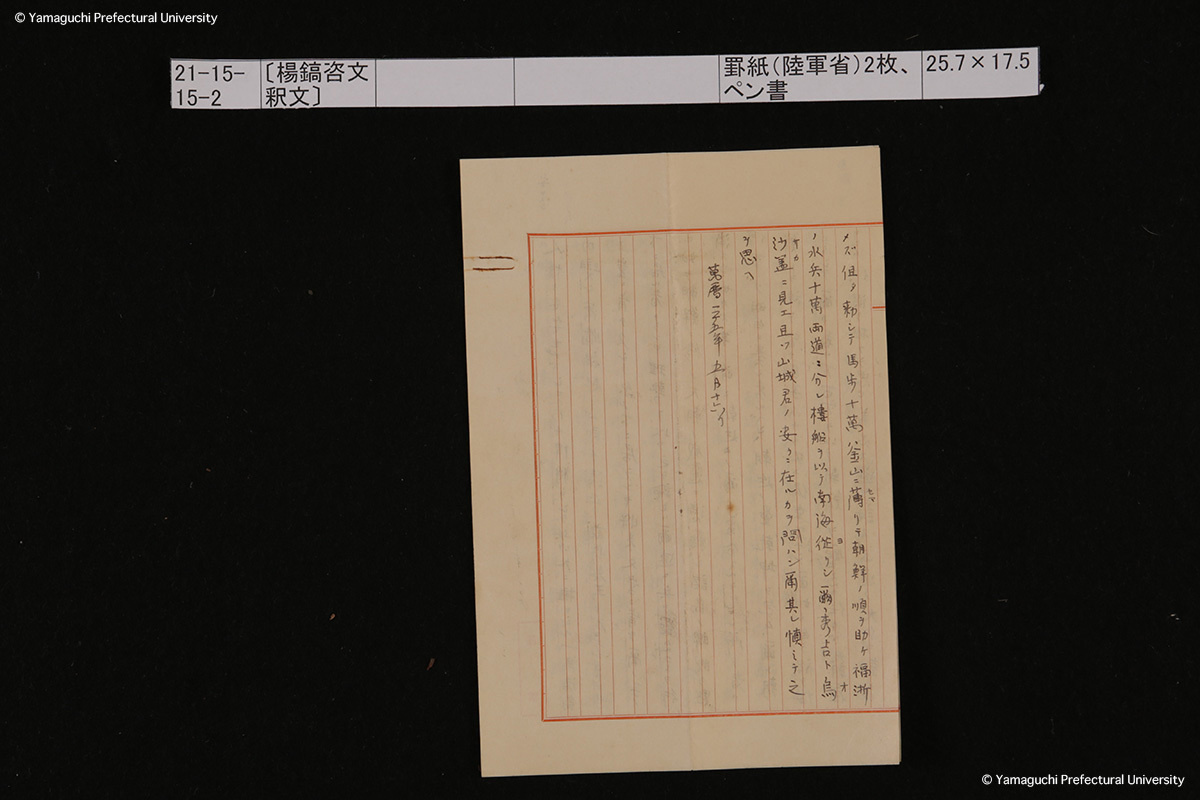 © Yamaguchi Prefectural University
21-15-
15-2
〔楊鎬咨文
釈文〕
罫紙(陸軍省)2枚、
ペン書
25.7×17.5
メズ但タ勅シテ馬歩十萬釜山ニ薄リテ朝鮮ノ順ヲ助ケ福浙
セマ
ノ水兵十萬両道ニ分レ樓船ヲ以テ南海従リシ爾ノ秀吉ト烏
ヨ オ
沙蓋ニ見エ且ツ山城君ノ安クニ在ルカヲ問ハン爾其レ慎ミテ之
ヲ思ヘ
萬暦二十五年五月十
© Yamaguchi Prefectural University